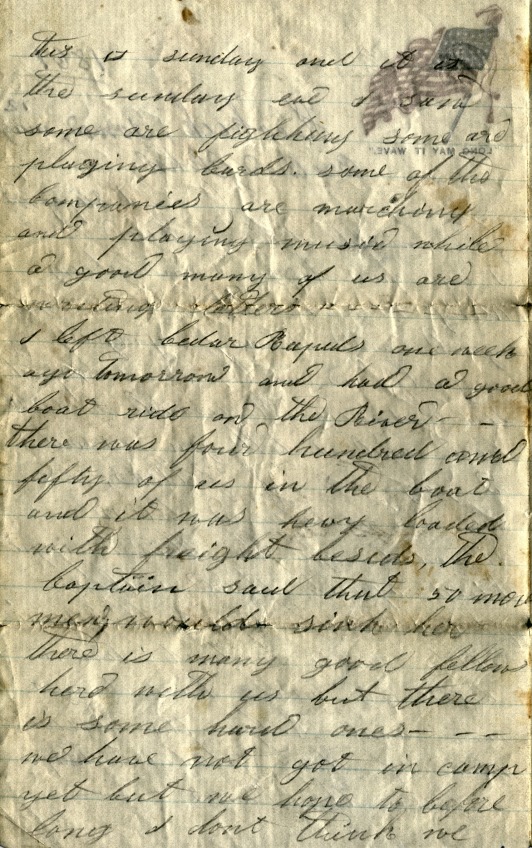 this is sunday and it is
the sunday eve I saw
some are fighting some are
playing cards. some of the
companies are marching
and playing music while
a good many of us are
writing letters
I left cedar Rapids one week
ago tomorrow and had a good
boat ride on the River - -
there was four hundred and
fifty of us in the boat
and it was hevy loaded
with freight besids, the
Captain said that 50 more
men would sink her
there is many good fellow
here with us but there
is some hard ones - - -
we have not got in camp
yet but we hope to before
long I dont think we
LONG MAY IT WAVE.